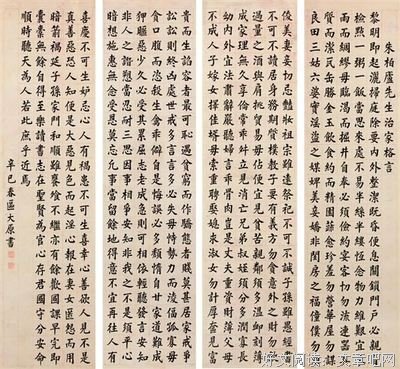 朱柏廬先生治家格言
黎明即起灑掃庭除要內外整潔既昏便息關鎖門戶必親自
檢點一粥一飯當思來處不易半絲半縷恆念物力維艱宜未
雨而綢繆毋臨渴而掘井自奉必須儉約宴客切勿流連器具
質而潔瓦缶勝金玉飲食約而精園蔬愈珍饈勿營華屋勿謀
良田三姑六婆實淫盜之媒婢美妾嬌非閨房之福僮僕勿用
俊美妻妾切忌豔妝祖宗雖遠祭祀不可不誠子孫雖愚經書
不可不讀居身務期質樸教子要有義方勿貪意外之財勿飲
過量之酒與肩挑貿易毋佔便宜見貧苦親鄰須多溫卹刻薄
成家理無久享倫常乖舛立見消亡兄弟叔姪須分多潤寡長
幼內外宜法肅辭嚴聽婦言乖骨肉豈是丈夫重貲財薄父母
不成人子嫁女擇佳壻毋索重聘娶媳求淑女勿計厚奩見富
貴而生諂容者最可恥遇貧窮而作驕態者賤莫甚居家戒爭
訟訟則終凶處世戒多言言多必失毋恃勢力而凌逼孤寡毋
貪口腹而恣殺生禽乖僻自是悔誤必多頹惰自甘家道難成
狎暱惡少久必受其累屈志老成急則可相依輕聽發言安知
非人之譖愬當忍耐三思因事相爭安知非我之不是須平心
暗想施惠無念受恩莫忘凡事當留餘地得意不宜再往人有
喜慶不可生妒忌心人有禍患不可生喜幸心善欲人見不是
真善惡恐人知便是大惡見色而起淫心報在妻女匿怨而用
暗箭禍延子孫家門和順雖饔飧不繼亦有餘歡國課早完即
囊橐無餘自得至樂讀書志在聖賢為官心存君國守分安命
順時聽天為人若此庶乎近焉
辛巳春區大原書
文章吧网